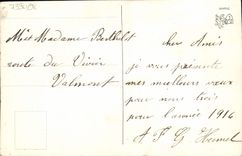 Mr et Madame Berthelot
route du Vivier
Valmont
cher Amis
je vous présente
mes meilleurs vœux
pour nous trois
pour l'année 1916
A F G Hamel